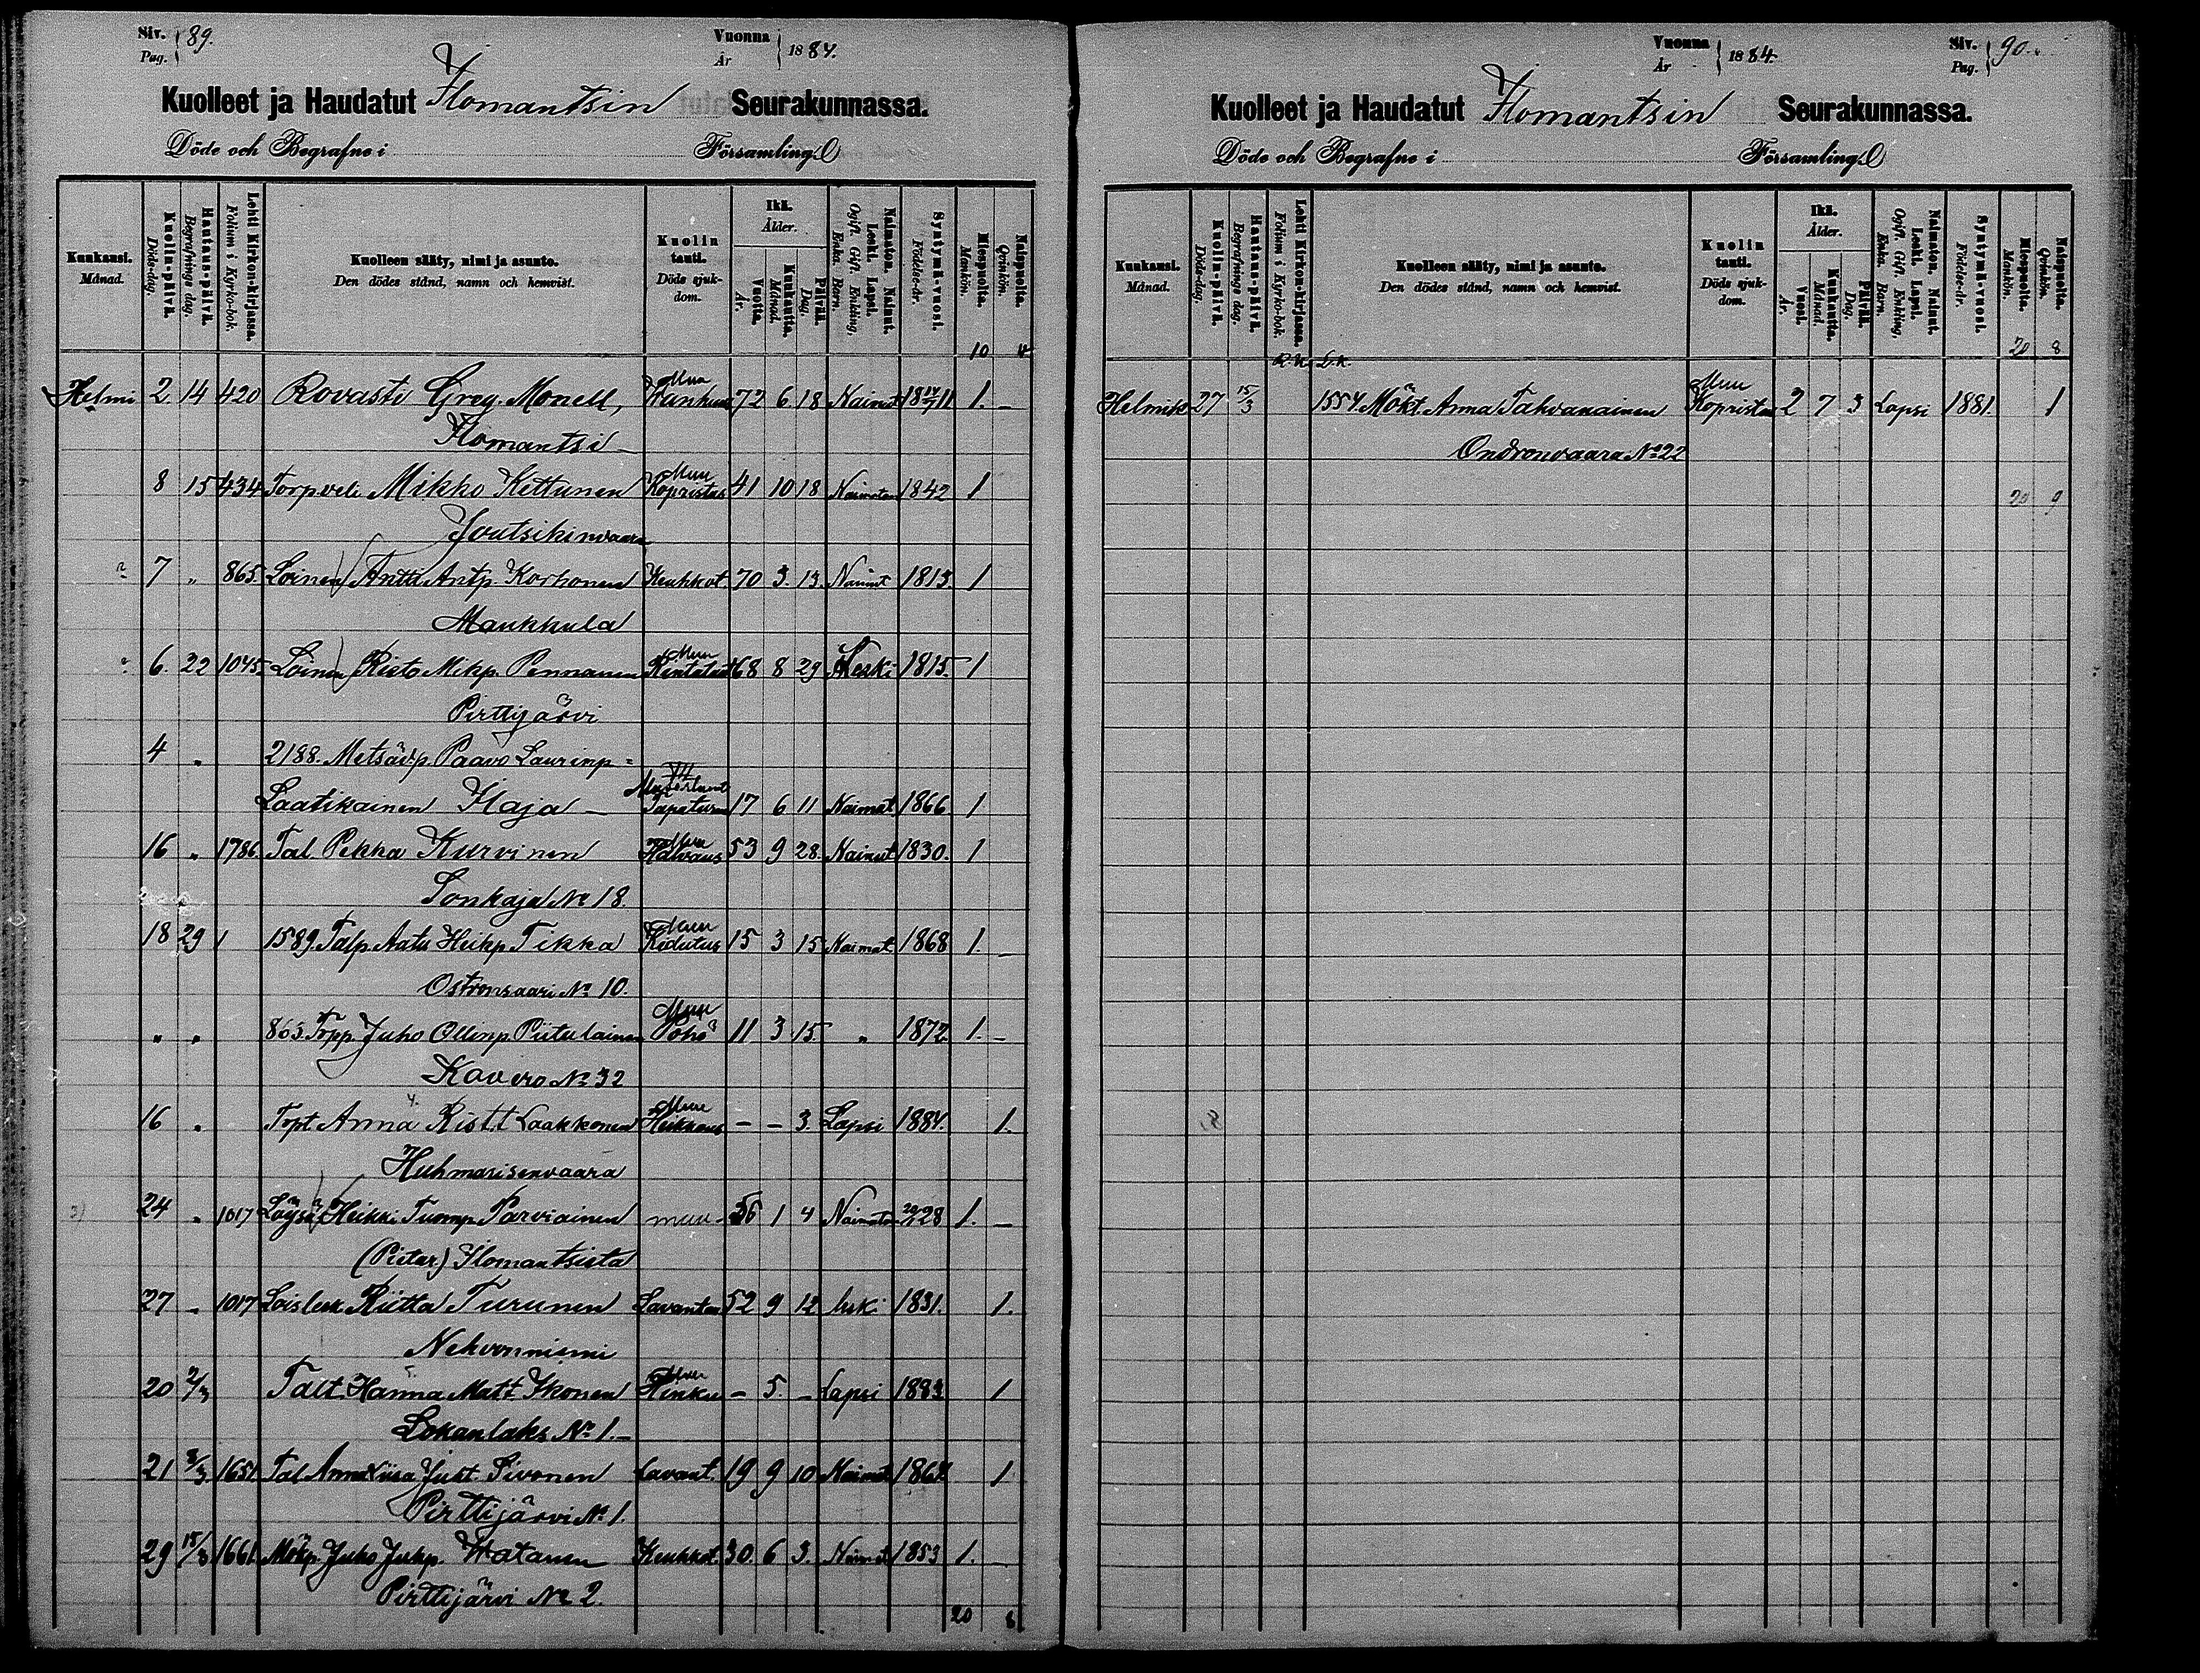 Siv. Pag. 89.
Vuonna År 1884.
Kuolleet ja Haudatut Ilomantsin Seurakunnassa.
Döde och Begrafne i Församling.
Kuukausi. Månad.
Kuolin-päivä. Döds-dag.
Hautaus-päivä. Begrafnings dag.
Lehti Kirkon-kirjassa. Folium i Kyrko-bok.
Kuolleen sääty, nimi ja asunto. Den dödes stånd, namn och hemvist.
Kuolin tauti. Döds sjuk-dom.
Ikä. Ålder.
Vuotta. År.
Kuukautta. Månad.
Päivää. Dag.
Naimaton. Nainut. Leski. Lapsi. Ogift. Gift. Enkling, Enka. Barn.
Syntymä-vuosi. Födelse-år.
Miespuolta. Mankön.
Naispuolta. Qvinkön.
10 4
Helmi 2 14 420 Rovasti Greg. Monell, Muu 72 6 18 Nainut 1811 1. –
Ilomantsi –
8 15 434 Torpveli Mikko Kettunen Muu Kopristus 41 10 18 Naimaton 1842 1
Joutsikinvaara
7 " 865 Loinen Antti Antp. Korhonen Keuhkot. 70 3. 13. Nainut 1813. 1
Maukkula
6. 22 1045 Loinen Risto Mikp. Pennanen Muu 68 8 29 Leski 1815. 1
Pirttijärvi
4 " 2188. Metsävp. Paavo Laurinp =
Laatikainen Ilaja – Tapaturm 17 6 11 Naimat. 1866 1
16 " 1786. Tal. Pekka Kurvinen Muu Halvaus 53 9 28. Nainut 1830. 1
Sonkaja No 18.
18 29 1 1589. Talp. Aatu Heikp. Tikka Muu 15 3 15 Naimat. 1868 1. –
Ostronsaari No 10.
" " 865. Torpp. Juho Ollinp. Piitulainen Muu Pöhö 11 3 15. " 1872. 1. –
Kavero No 32
16 " Torpt Anna Rist.t. Laakkonen Muu Heikkous – – 3. Lapsi 1884. 1.
Huhmarisenvaara
24 " 1017 Löysä Heikki Tuomp. Parviainen muu – 56 1 4 Naimaton 28 1. –
(Pietar.) Ilomantsista
27 – 1017 Loislesk. Riitta Turunen Lavantau 52 9 12 leski 1831. 1.
Nehvonniemi
20 2/3 Talt. Hanna Matt. Ikonen Muu Hinku – 5. – Lapsi 1883 1
Lokanlaks No 1. –
21 2/3 1651. Tal. Anna Liisa Just. Sivonen Lavant. 19 9 10 Naimat. 1864. 1
Pirttijärvi No 1.
29 15/3 1661. Mökp. Juho Juhp. Watanen Keuhkot. 30. 6 3. Nainut 1853 1.
Pirttijärvi No 2.
20
Vuonna År 1884.
Siv. Pag. 90.
Kuolleet ja Haudatut Ilomantsin Seurakunnassa.
Döde och Begrafne i Församling.
Kuukausi. Månad.
Kuolin-päivä. Döds-dag.
Hautaus-päivä. Begrafnings dag.
Lehti Kirkon-kirjassa. Folium i Kyrko-bok.
Kuolleen sääty, nimi ja asunto. Den dödes stånd, namn och hemvist.
Kuolin tauti. Döds sjuk-dom.
Ikä. Ålder.
Vuosi. År.
Kuukautta. Månad.
Päivää. Dag.
Naimaton. Nainut. Leski. Lapsi. Ogift. Gift. Enkling, Enka. Barn.
Syntymä-vuosi. Födelse-år.
Miespuolta. Mankön.
Naispuolta. Qvinkön.
20 8
R.K. L.K.
Helmik 27 15/3 1554. Mökt. Anna Tahvanainen Muu Kopristus 2 7 3 Lapsi 1881. 1
Ondronvaara No 22
20 9